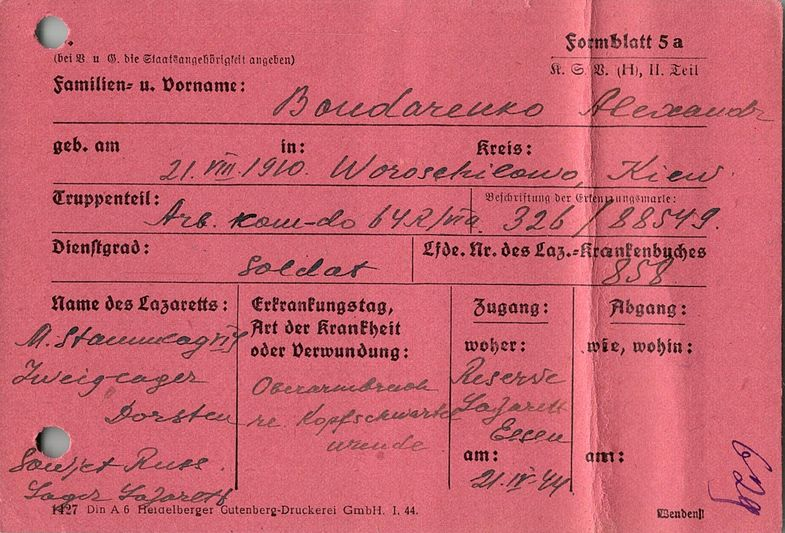 Formblatt 5a
(bei V u G. die Staatsangehörigkeit angeben)
K. S. V. (H), II. Teil
Familien- u. Vorname:
Bondarenko Alexandr
geb. am in: Kreis:
21. VIII. 1910. Woroschilowo, Kiew.
Truppenteil: Beschriftung der Erkennungsmarke:
Arb. kom-do 64R/VIa 326/88549.
Dienstgrad: Lfde. Nr. des Laz.-Krankenbuches
Soldat 858.
Name des Lazaretts:
M. Stammlag
Zweiglager
Dorsten
Sowjet Russ.
Lager Lazarett
Erkrankungstag,
Art der Krankheit
oder Verwundung:
Oberarmbruch
re. Kopfschwarte
wunde
Zugang:
woher:
Reserve
Lazarett
Essen
am:
21. IV. 44
Abgang:
wie, wohin:
am:
1427 Din A 6 Heidelberger Gutenberg-Druckerei GmbH. I. 44.
Wenden!